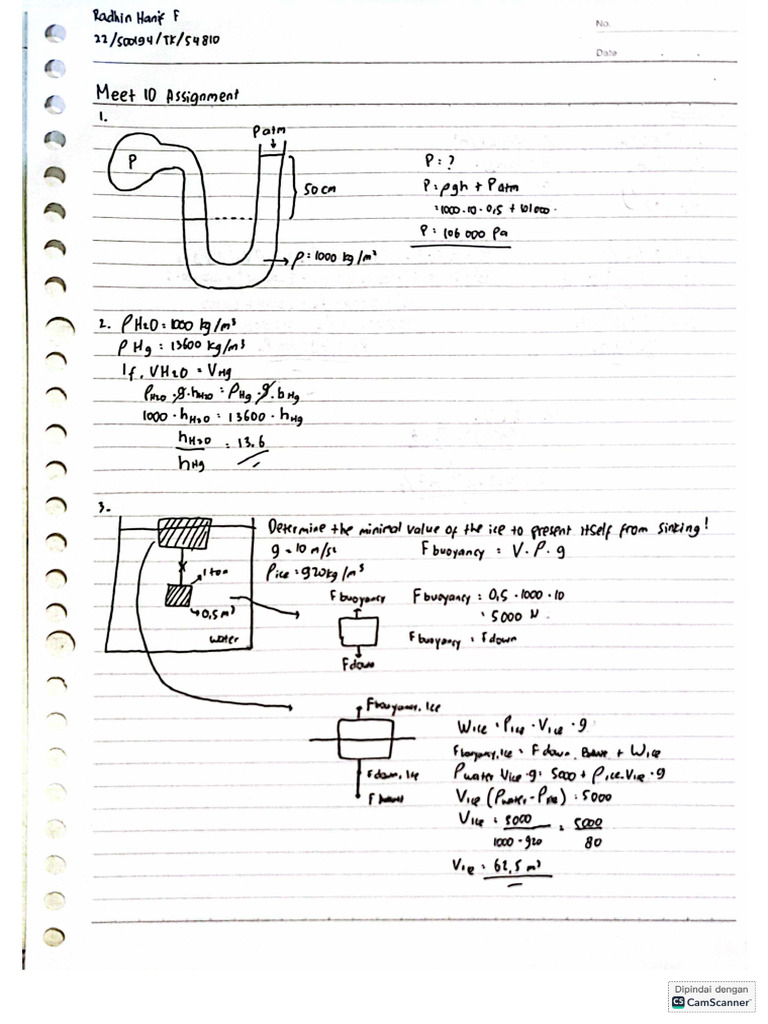 Radhin Hanif F
22/500194/TK/54810
No.
Date
Meet 10 Assignment
1.
P
Patm
50 cm
ρ = 1000 kg/m³
P = ?
P = ρgh + Patm
= 1000 · 10 · 0,5 + 101000
P = 106 000 Pa
2. ρ H2O = 1000 kg/m³
ρ Hg = 13600 kg/m³
If, VH2O = VHg
ρH2O · g · hH2O = ρHg · g · hHg
1000 · hH2O = 13600 · hHg
hH2O / hHg = 13.6
3.
1 ton
0,5 m³
water
Determine the minimal value of the ice to present itself from sinking!
g = 10 m/s²
F buoyancy = V · ρ · g
ρice = 920 kg/m³
F buoyancy
F down
F buoyancy = 0,5 · 1000 · 10
= 5000 N
F buoyancy = F down
F buoyancy, Ice
F down, Ice
Wice = ρice · Vice · g
F buoyancy, Ice = F down, + Wice
ρwater Vice · g = 5000 + ρice · Vice · g
Vice (ρwater - ρice) = 5000
Vice = 5000 / 1000 - 920 = 5000 / 80
Vice = 62,5 m³
Dipindai dengan
CS CamScanner